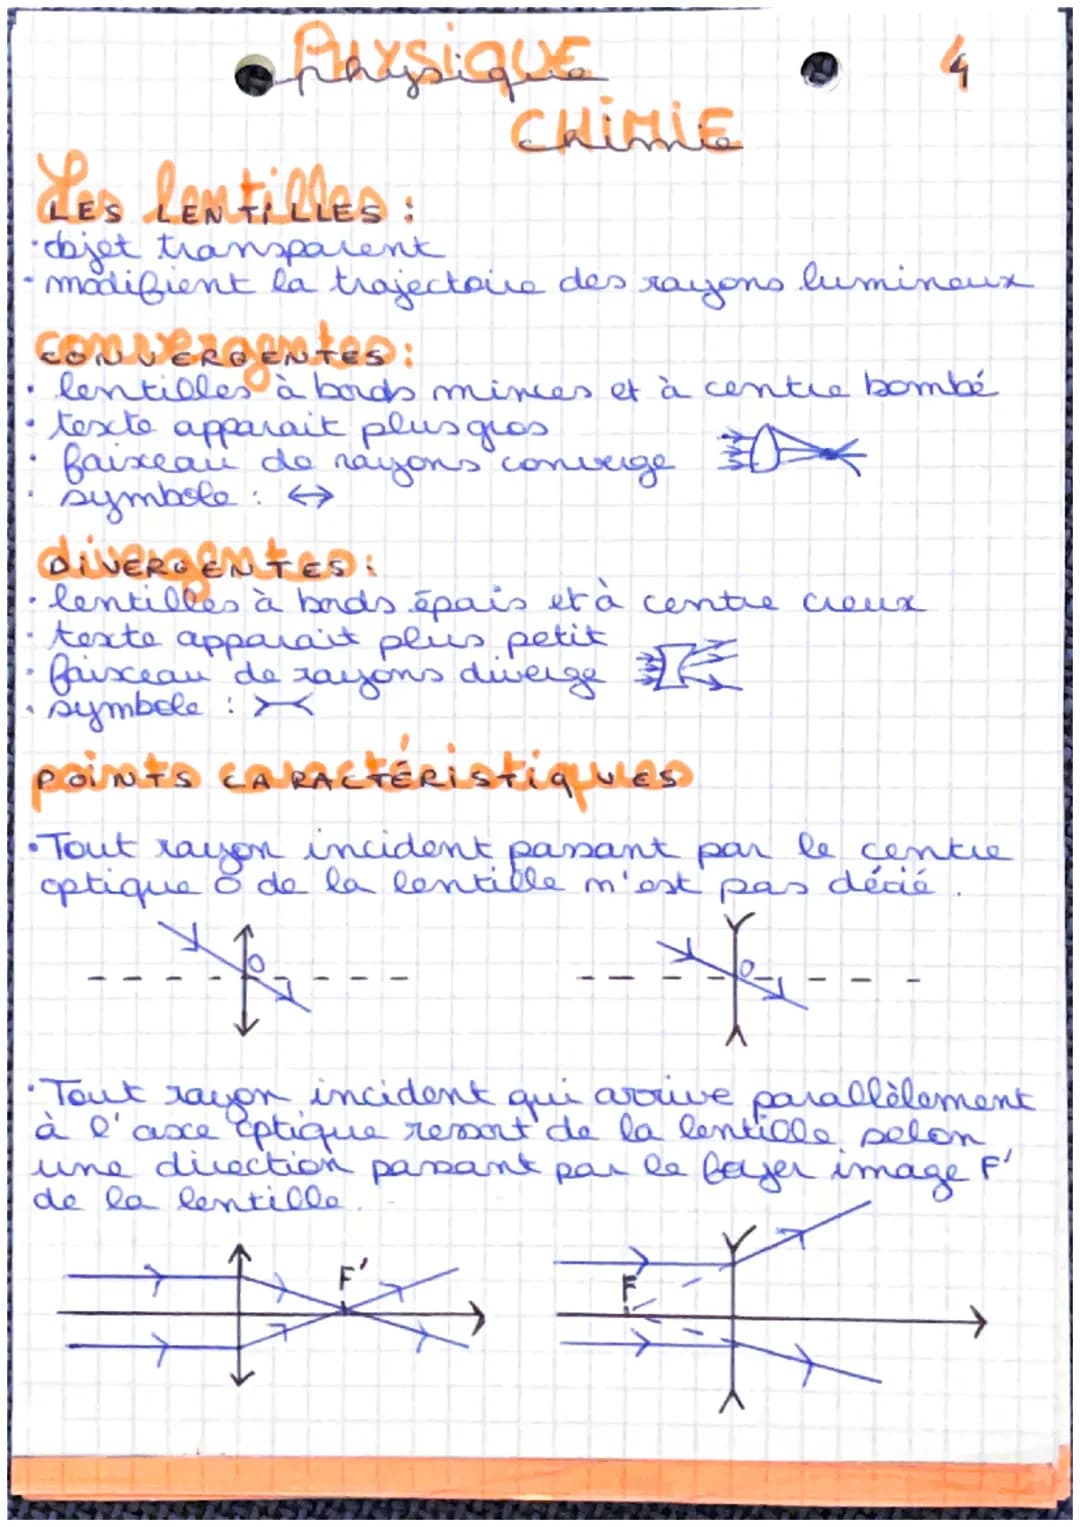 Physique
physique
4
CHIMIE
chimie
Les lentilles
LES LENTILLES :
• objet transparent
• modifient la trajectoire des rayons lumineux
convergentes
CONVERGENTES :
• lentilles à bords minces et à centre bombé
• texte apparait plus gros
• faixeau de rayons converge
• symbole : ↔
divergentes
DIVERGENTES :
• lentilles à bords épais et à centre creux
• texte apparait plus petit
• faisceau de rayons diverge
• symbole : >-<
points caractéristiques
POINTS CARACTÉRISTIQUES
• Tout rayon incident passant par le centre
optique O de la lentille n'est pas dévié.
O
O
• Tout rayon incident qui arrive parallèlement
à l'axe optique ressort de la lentille selon
une direction passant par le foyer image F'
de la lentille.
F'
F